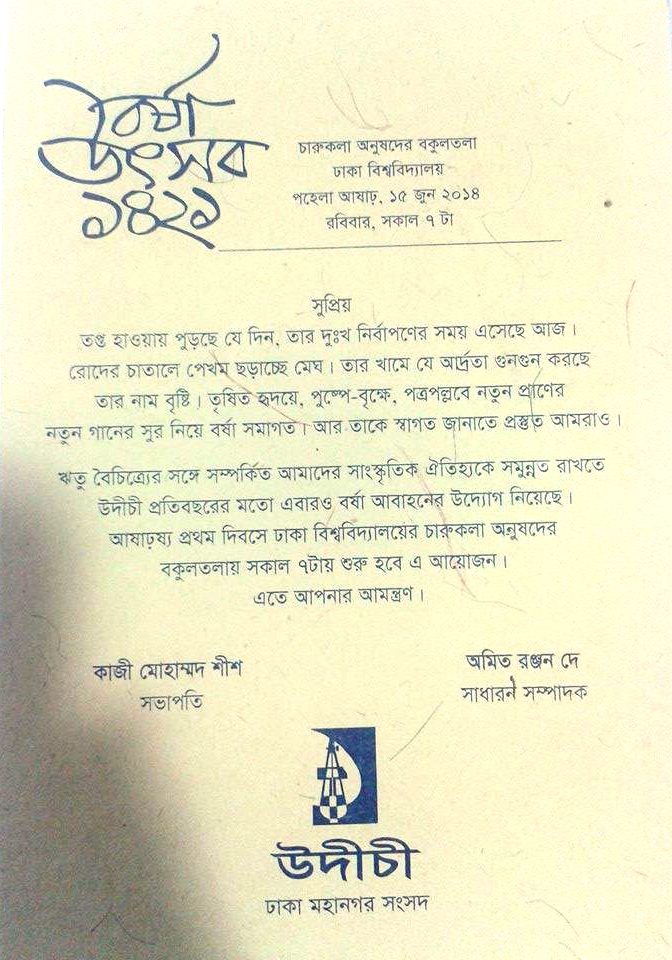 বর্ষা
উৎসব
১৪২১
চারুকলা অনুষদের বকুলতলা
ঢাকা বিশ্ববিদ্যালয়
পহেলা আষাঢ়, ১৫ জুন ২০১৪
রবিবার, সকাল ৭ টা
সুপ্রিয়
তপ্ত হাওয়ায় পুড়ছে যে দিন, তার দুঃখ নির্বাপণের সময় এসেছে আজ।
রোদের চাতালে পেখম ছড়াচ্ছে মেঘ। তার খামে যে আর্দ্রতা গুনগুন করছে
তার নাম বৃষ্টি। তৃষিত হৃদয়ে, পুষ্পে-বৃক্ষে, পত্রপল্লবে নতুন প্রাণের
নতুন গানের সুর নিয়ে বর্ষা সমাগত। আর তাকে স্বাগত জানাতে প্রস্তুত আমরাও।
ঋতু বৈচিত্র্যের সঙ্গে সম্পর্কিত আমাদের সাংস্কৃতিক ঐতিহ্যকে সমুন্নত রাখতে
উদীচী প্রতিবছরের মতো এবারও বর্ষা আবাহনের উদ্যোগ নিয়েছে।
আষাঢ়ষ্য প্রথম দিবসে ঢাকা বিশ্ববিদ্যালয়ের চারুকলা অনুষদের
বকুলতলায় সকাল ৭টায় শুরু হবে এ আয়োজন।
এতে আপনার আমন্ত্রণ।
কাজী মোহাম্মদ শীশ
সভাপতি
অমিত রঞ্জন দে
সাধারন সম্পাদক
উদীচী
ঢাকা মহানগর সংসদ